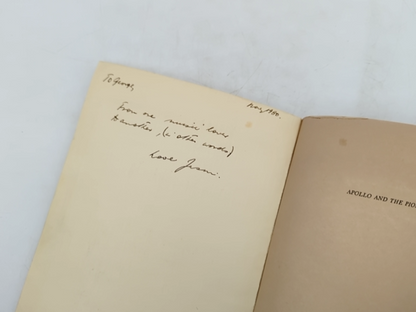 To
May 1980.
From one music lover
to another, (in other words)
Love
APOLLO AND THE PIO